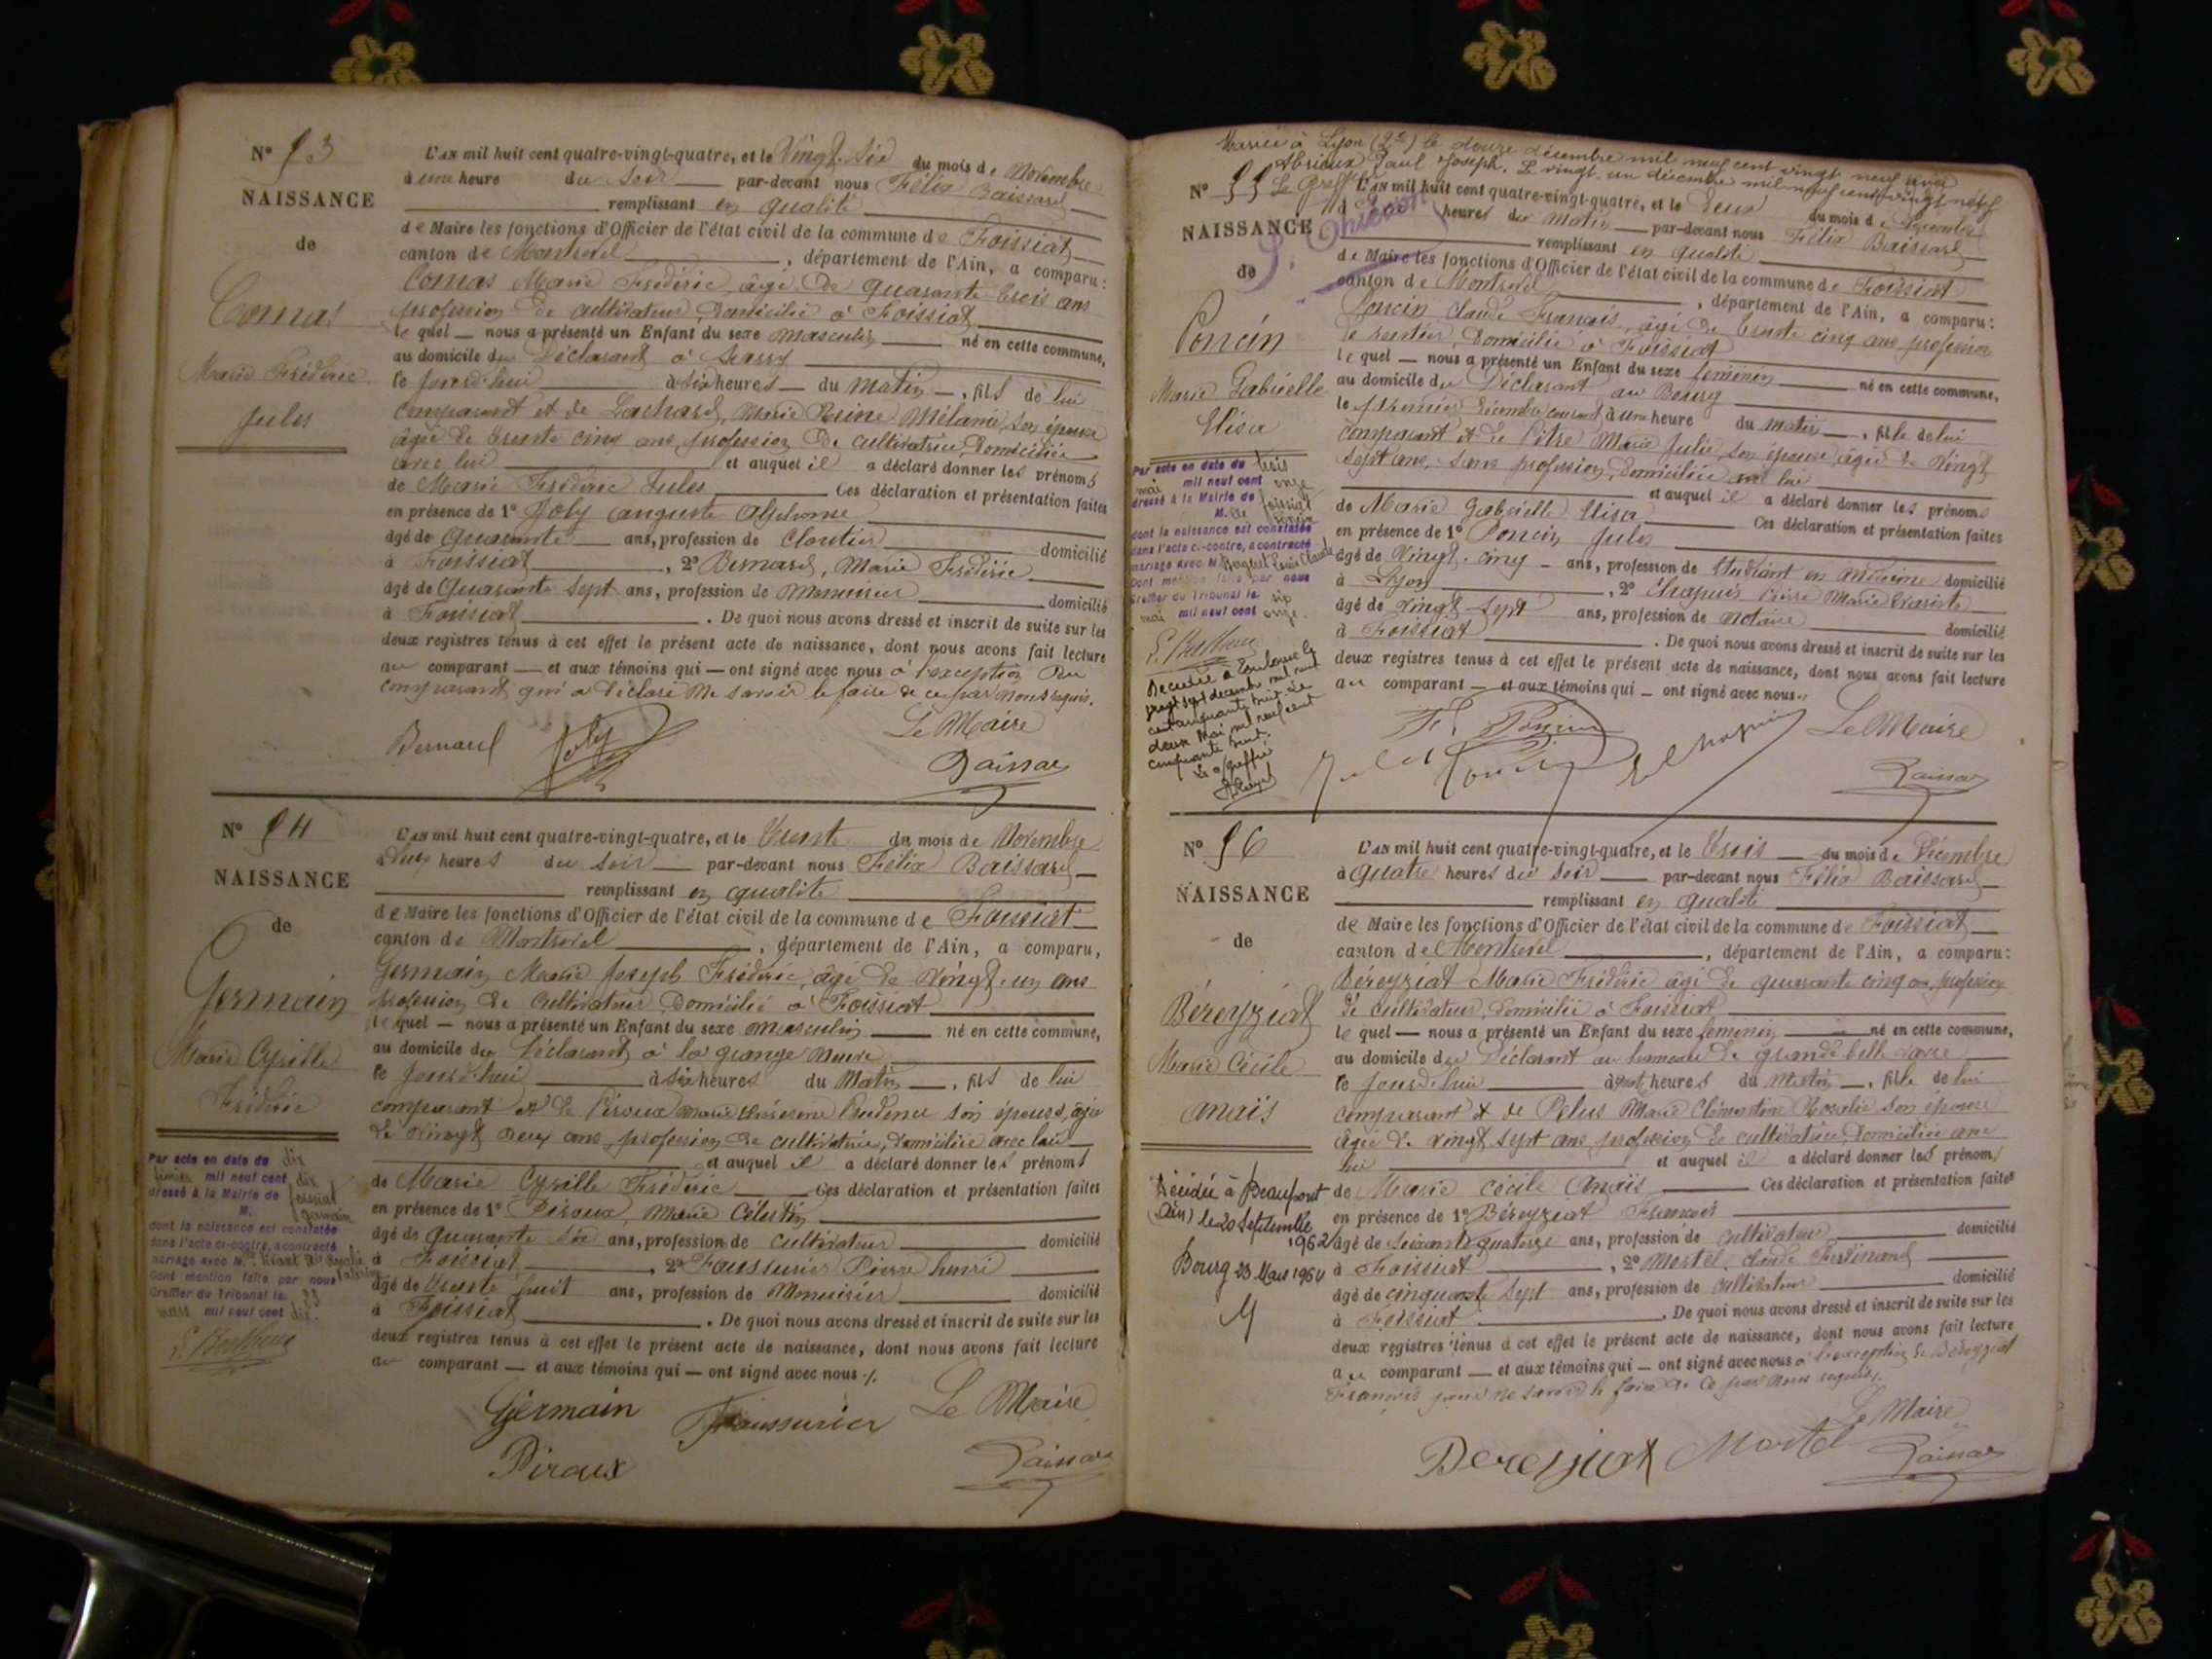 N° 53
NAISSANCE
de
Comas
Marie Frédéric
Jules
L'AN mil huit cent quatre-vingt-quatre, et le Vingt-Six du mois de Novembre
à une heure du Soir par-devant nous Félix Baissard
remplissant en qualité
de Maire les fonctions d'Officier de l'état civil de la commune de Foissiat
canton de Montrevel, département de l'Ain, a comparu:
Comas Marie Frédéric, âgé de quarante trois ans
profession de cultivateur, domicilié à Foissiat
le quel nous a présenté un Enfant du sexe masculin né en cette commune,
au domicile du Déclarant à
le jourd'hui à six heures du matin, fils de lui
comparant et de Marie Reine Mélanie, son épouse
âgée de trente cinq ans, profession de cultivatrice, domiciliée
avec lui et auquel il a déclaré donner les prénoms
de Marie Frédéric Jules Ces déclaration et présentation faites
en présence de 1° Joly auguste Alphonse
âgé de quarante ans, profession de cloutier domicilié
à Foissiat, 2° Bernard, Marie Frédéric
âgé de Quarante Sept ans, profession de Menuisier domicilié
à Foissiat. De quoi nous avons dressé et inscrit de suite sur les
deux registres tenus à cet effet le présent acte de naissance, dont nous avons fait lecture
au comparant et aux témoins qui ont signé avec nous à l'exception du
comparant qui a déclaré ne savoir le faire de ce par nous requis.
Bernard Joly Le Maire
Baissard
N° 54
NAISSANCE
de
Germain
Marie Cyrille
Frédéric
Par acte en date du dix
février mil neuf cent dix
dressé à la Mairie de foissiat
M. germain
dont la naissance est constatée
dans l'acte ci-contre, a contracté
mariage avec M.
Dont mention faite par nous
Greffier du Tribunal le
mars mil neuf cent dix.
L'AN mil huit cent quatre-vingt-quatre, et le Trente du mois de Novembre
à deux heures du soir par-devant nous Félix Baissard
remplissant en qualité
de Maire les fonctions d'Officier de l'état civil de la commune de Foissiat
canton de Montrevel, département de l'Ain, a comparu,
Germain Marie Joseph Frédéric, âgé de Vingt-un ans
profession de Cultivateur, Domicilié à Foissiat
le quel nous a présenté un Enfant du sexe masculin né en cette commune,
au domicile du Déclarant à la grange neuve
le jourd'hui à six heures du Matin, fils de lui
comparant et de Piroux Marie Prudence son épouse, âgée
de Vingt deux ans, profession de cultivatrice, domiciliée avec lui
et auquel il a déclaré donner les prénoms
de Marie Cyrille Frédéric Ces déclaration et présentation faites
en présence de 1° Piroux, Marie Célestin
âgé de quarante six ans, profession de cultivateur domicilié
à Foissiat, 2° Faussurier Pierre henri
âgé de trente huit ans, profession de Menuisier domicilié
à Foissiat. De quoi nous avons dressé et inscrit de suite sur les
deux registres tenus à cet effet le présent acte de naissance, dont nous avons fait lecture
au comparant et aux témoins qui ont signé avec nous
Germain Faussurier Le Maire
Piroux Baissard
Mariée à Lyon (2e) le douze décembre mil neuf cent vingt neuf avec
Abrieux Paul Joseph. Le vingt-un décembre mil neuf cent vingt neuf
Le Greffier
N° 55
NAISSANCE
de
Poncin
Marie Gabrielle
Elisa
Par acte en date du trois
mai mil neuf cent onze
dressé à la Mairie de foissiat
M.lle Poncin
dont la naissance est constatée
dans l'acte ci-contre, a contracté
mariage avec M. Louis Claude
Dont mention faite par nous
Greffier du Tribunal le six
mai mil neuf cent onze.
Décédée à Toulouse le
vingt sept décembre mil neuf
cent cinquante sept. Le
deux Mai mil neuf cent
cinquante huit.
Le Greffier
L'AN mil huit cent quatre-vingt-quatre, et le Deux du mois de Décembre
à heures du matin par-devant nous Félix Baissard
remplissant en qualité
de Maire les fonctions d'Officier de l'état civil de la commune de Foissiat
canton de Montrevel, département de l'Ain, a comparu:
Poncin Claude François, âgé de trente cinq ans profession
de rentier, domicilié à Foissiat
le quel nous a présenté un Enfant du sexe féminin né en cette commune,
au domicile du Déclarant au Bourg
le premier Décembre courant, à une heure du matin, fille de lui
comparant et de Pitre Marie Julie, son épouse, âgée de Vingt
sept ans, sans profession, domiciliée avec lui
et auquel il a déclaré donner les prénoms
de Marie Gabrielle Elisa Ces déclaration et présentation faites
en présence de 1° Poncin Jules
âgé de Vingt-cinq ans, profession de étudiant en médecine domicilié
à Lyon, 2° Chapuis Marie Evariste
âgé de vingt-sept ans, profession de notaire domicilié
à Foissiat. De quoi nous avons dressé et inscrit de suite sur les
deux registres tenus à cet effet le présent acte de naissance, dont nous avons fait lecture
au comparant et aux témoins qui ont signé avec nous.
F. Poncin Le Maire
Jules Poncin Chapuis Baissard
N° 56
NAISSANCE
de
Béreyziat
Marie Cécile
Anaïs
Décédée à Beaupont
(Ain) le 20 Septembre
1962
Bourg 23 Mars 1964
L'AN mil huit cent quatre-vingt-quatre, et le Trois du mois de Décembre
à quatre heures du soir par-devant nous Félix Baissard
remplissant en qualité
de Maire les fonctions d'Officier de l'état civil de la commune de Foissiat
canton de Montrevel, département de l'Ain, a comparu:
Béreyziat Marie Frédéric âgé de quarante cinq ans profession
de cultivateur, domicilié à Foissiat
le quel nous a présenté un Enfant du sexe féminin né en cette commune,
au domicile du Déclarant au hameau de
le jourd'hui à heures du Matin, fille de lui
comparant et de Pelus Marie Clémentine Rosalie son épouse
âgée de vingt sept ans profession de cultivatrice, domiciliée avec
lui et auquel il a déclaré donner les prénoms
de Marie Cécile Anaïs Ces déclaration et présentation faites
en présence de 1° Béreyziat François
âgé de Soixante quatorze ans, profession de Cultivateur domicilié
à Foissiat, 2° Mortel, Claude Ferdinand
âgé de cinquante Sept ans, profession de cultivateur domicilié
à Foissiat. De quoi nous avons dressé et inscrit de suite sur les
deux registres tenus à cet effet le présent acte de naissance, dont nous avons fait lecture
au comparant et aux témoins qui ont signé avec nous à l'exception de Béreyziat
François pour ne savoir le faire de ce par nous requis.
Le Maire
Bereyziat Mortel Baissard